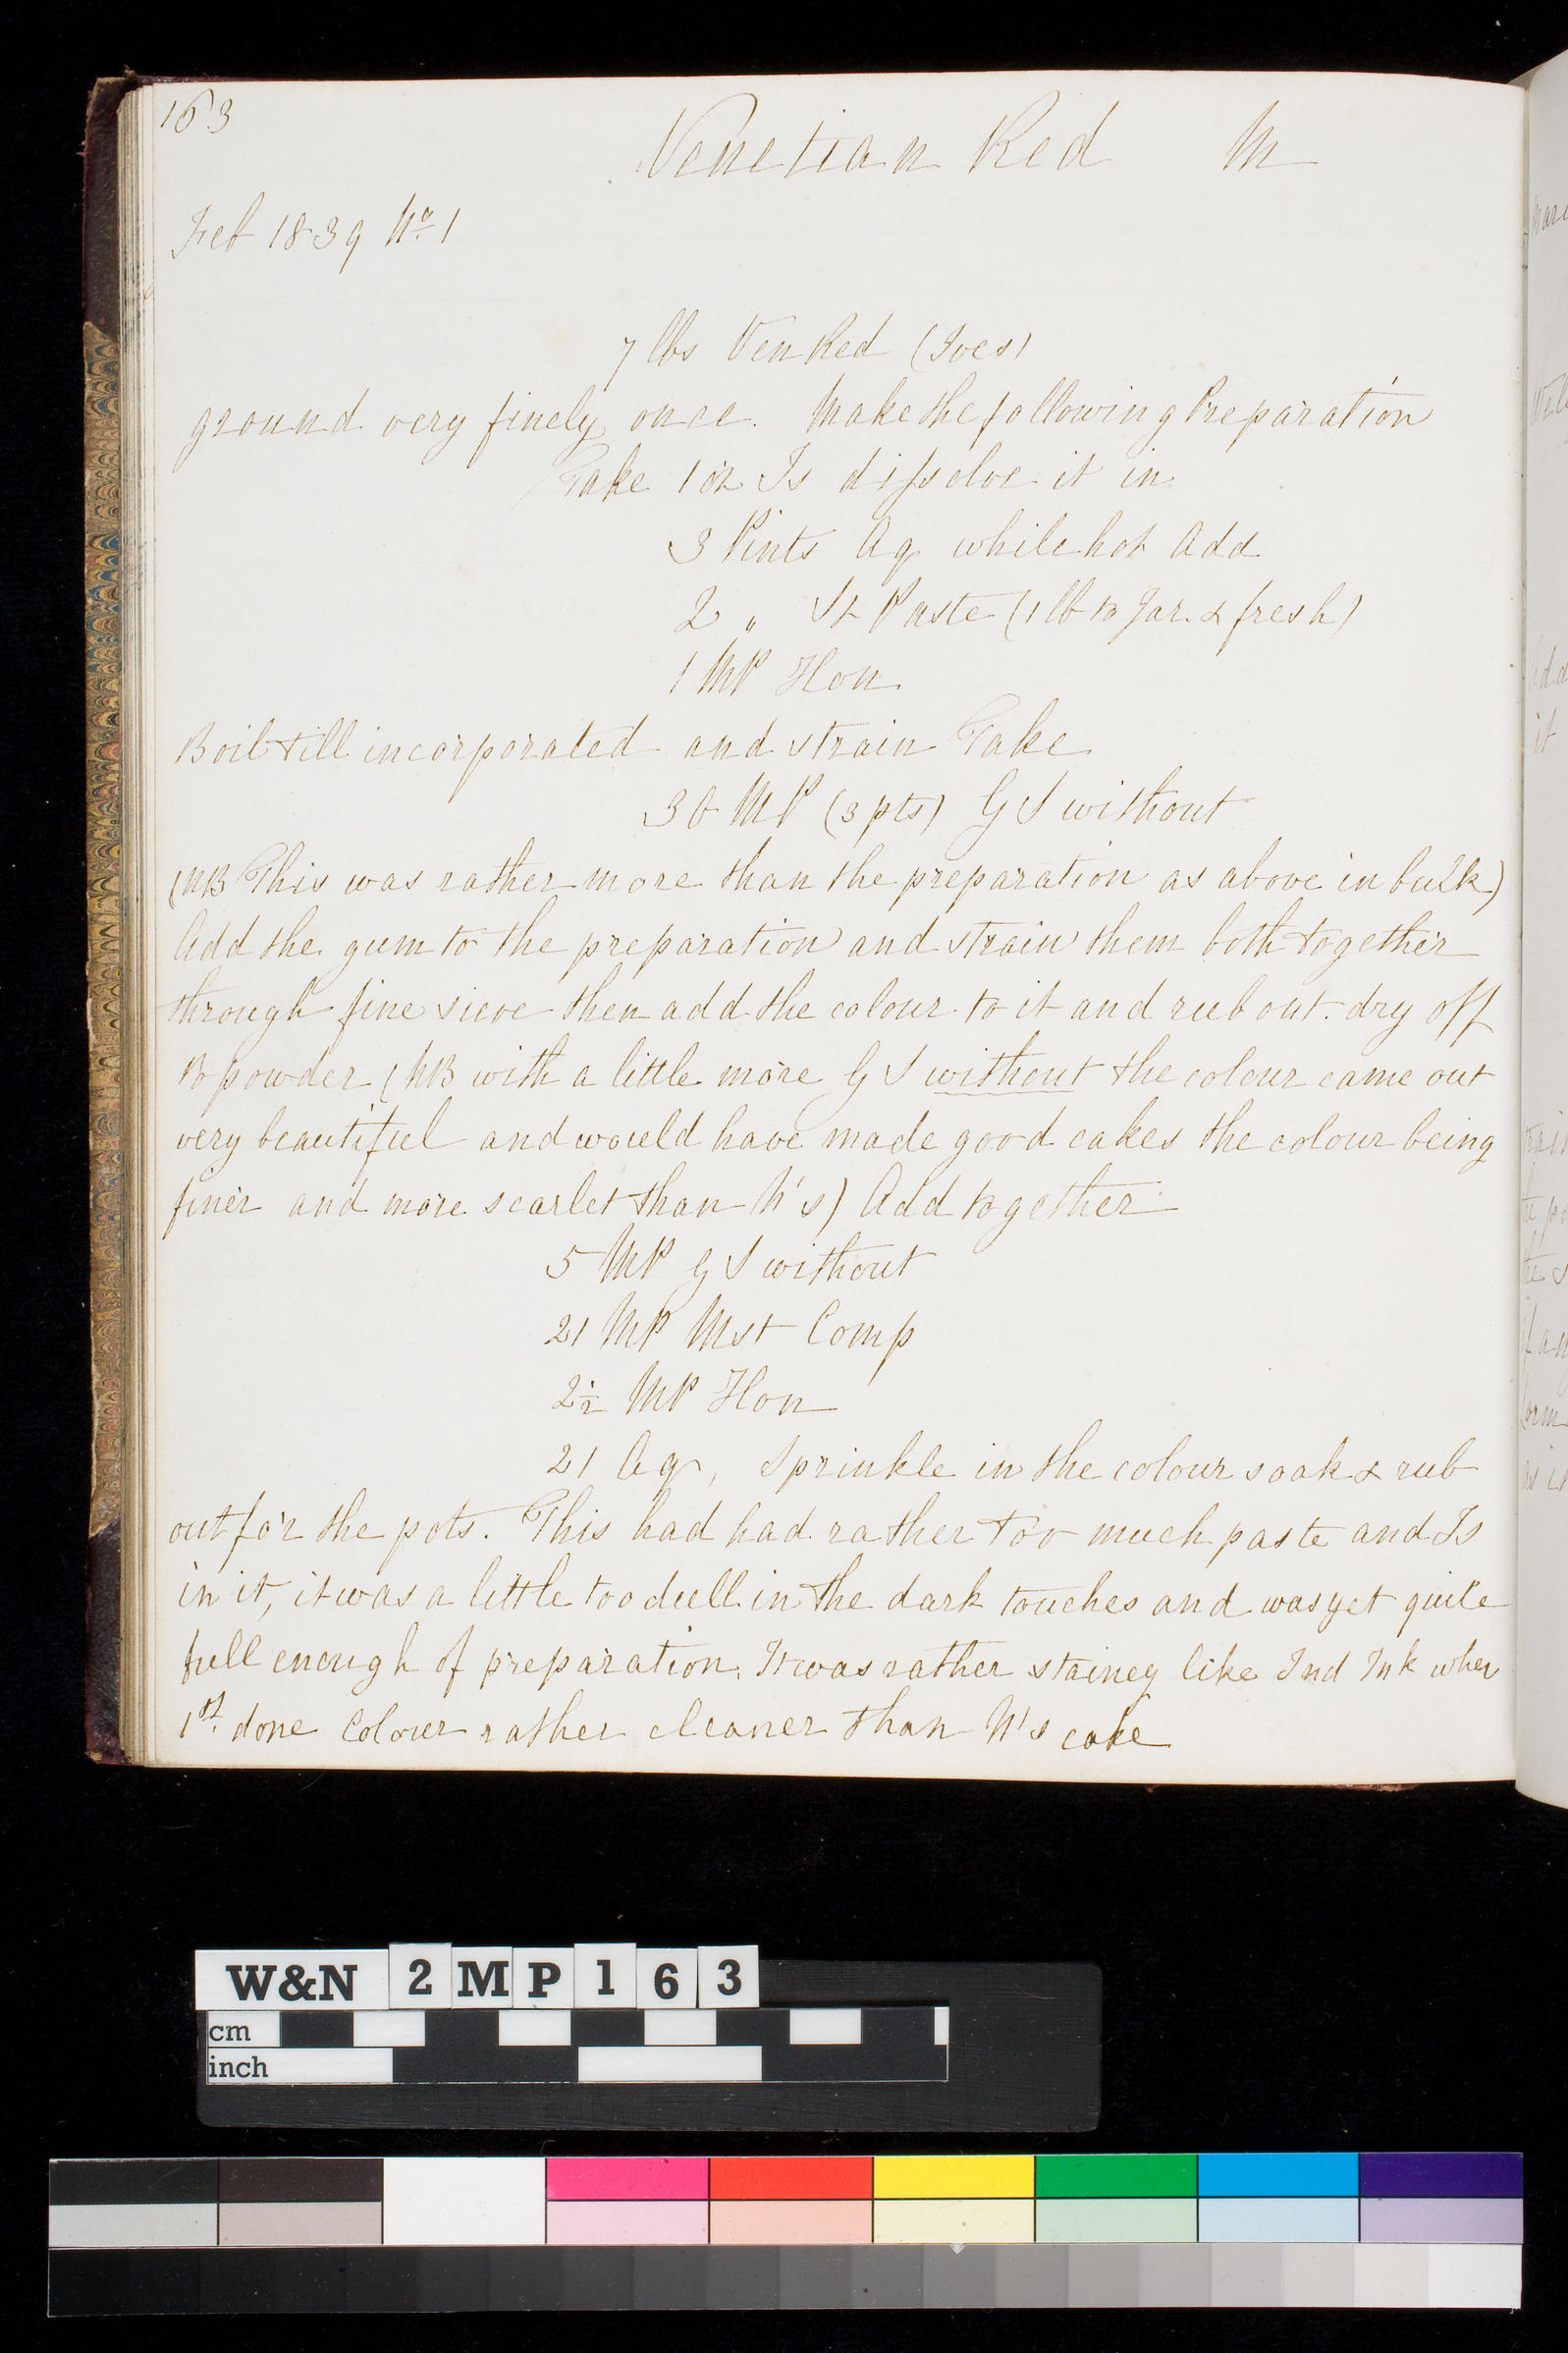 163
Venetian Red M
Feb 1839 No. 1
7 lbs Ven Red (Ives)
ground very finely once. Make the following Preparation
Take 1 oz Is dissolve it in
3 Pints Aq while hot Add
2 " St Paste (1 lb to Jar & fresh)
1 MP Hon
Boil till incorporated and strain Take
30 MP (3 pts) G S without
(NB This was rather more than the preparation as above in bulk)
Add the gum to the preparation and strain them both together
through fine sieve then add the colour to it and rub out. dry off
to powder (NB with a little more G S without the colour came out
very beautiful and would have made good cakes the colour being
finer and more scarlet than N's) Add together
5 MP G S without
21 MP Mst Comp
2½ MP Hon
21 Aq, Sprinkle in the colour soak & rub
out for the pots. This had had rather too much paste and Is
in it, it was a little too dull in the dark touches and was yet quite
full enough of preparation. It was rather stainey like Ind Ink when
1st. done Colour rather cleaner than N's cake
W&N 2MP163
cm
inch